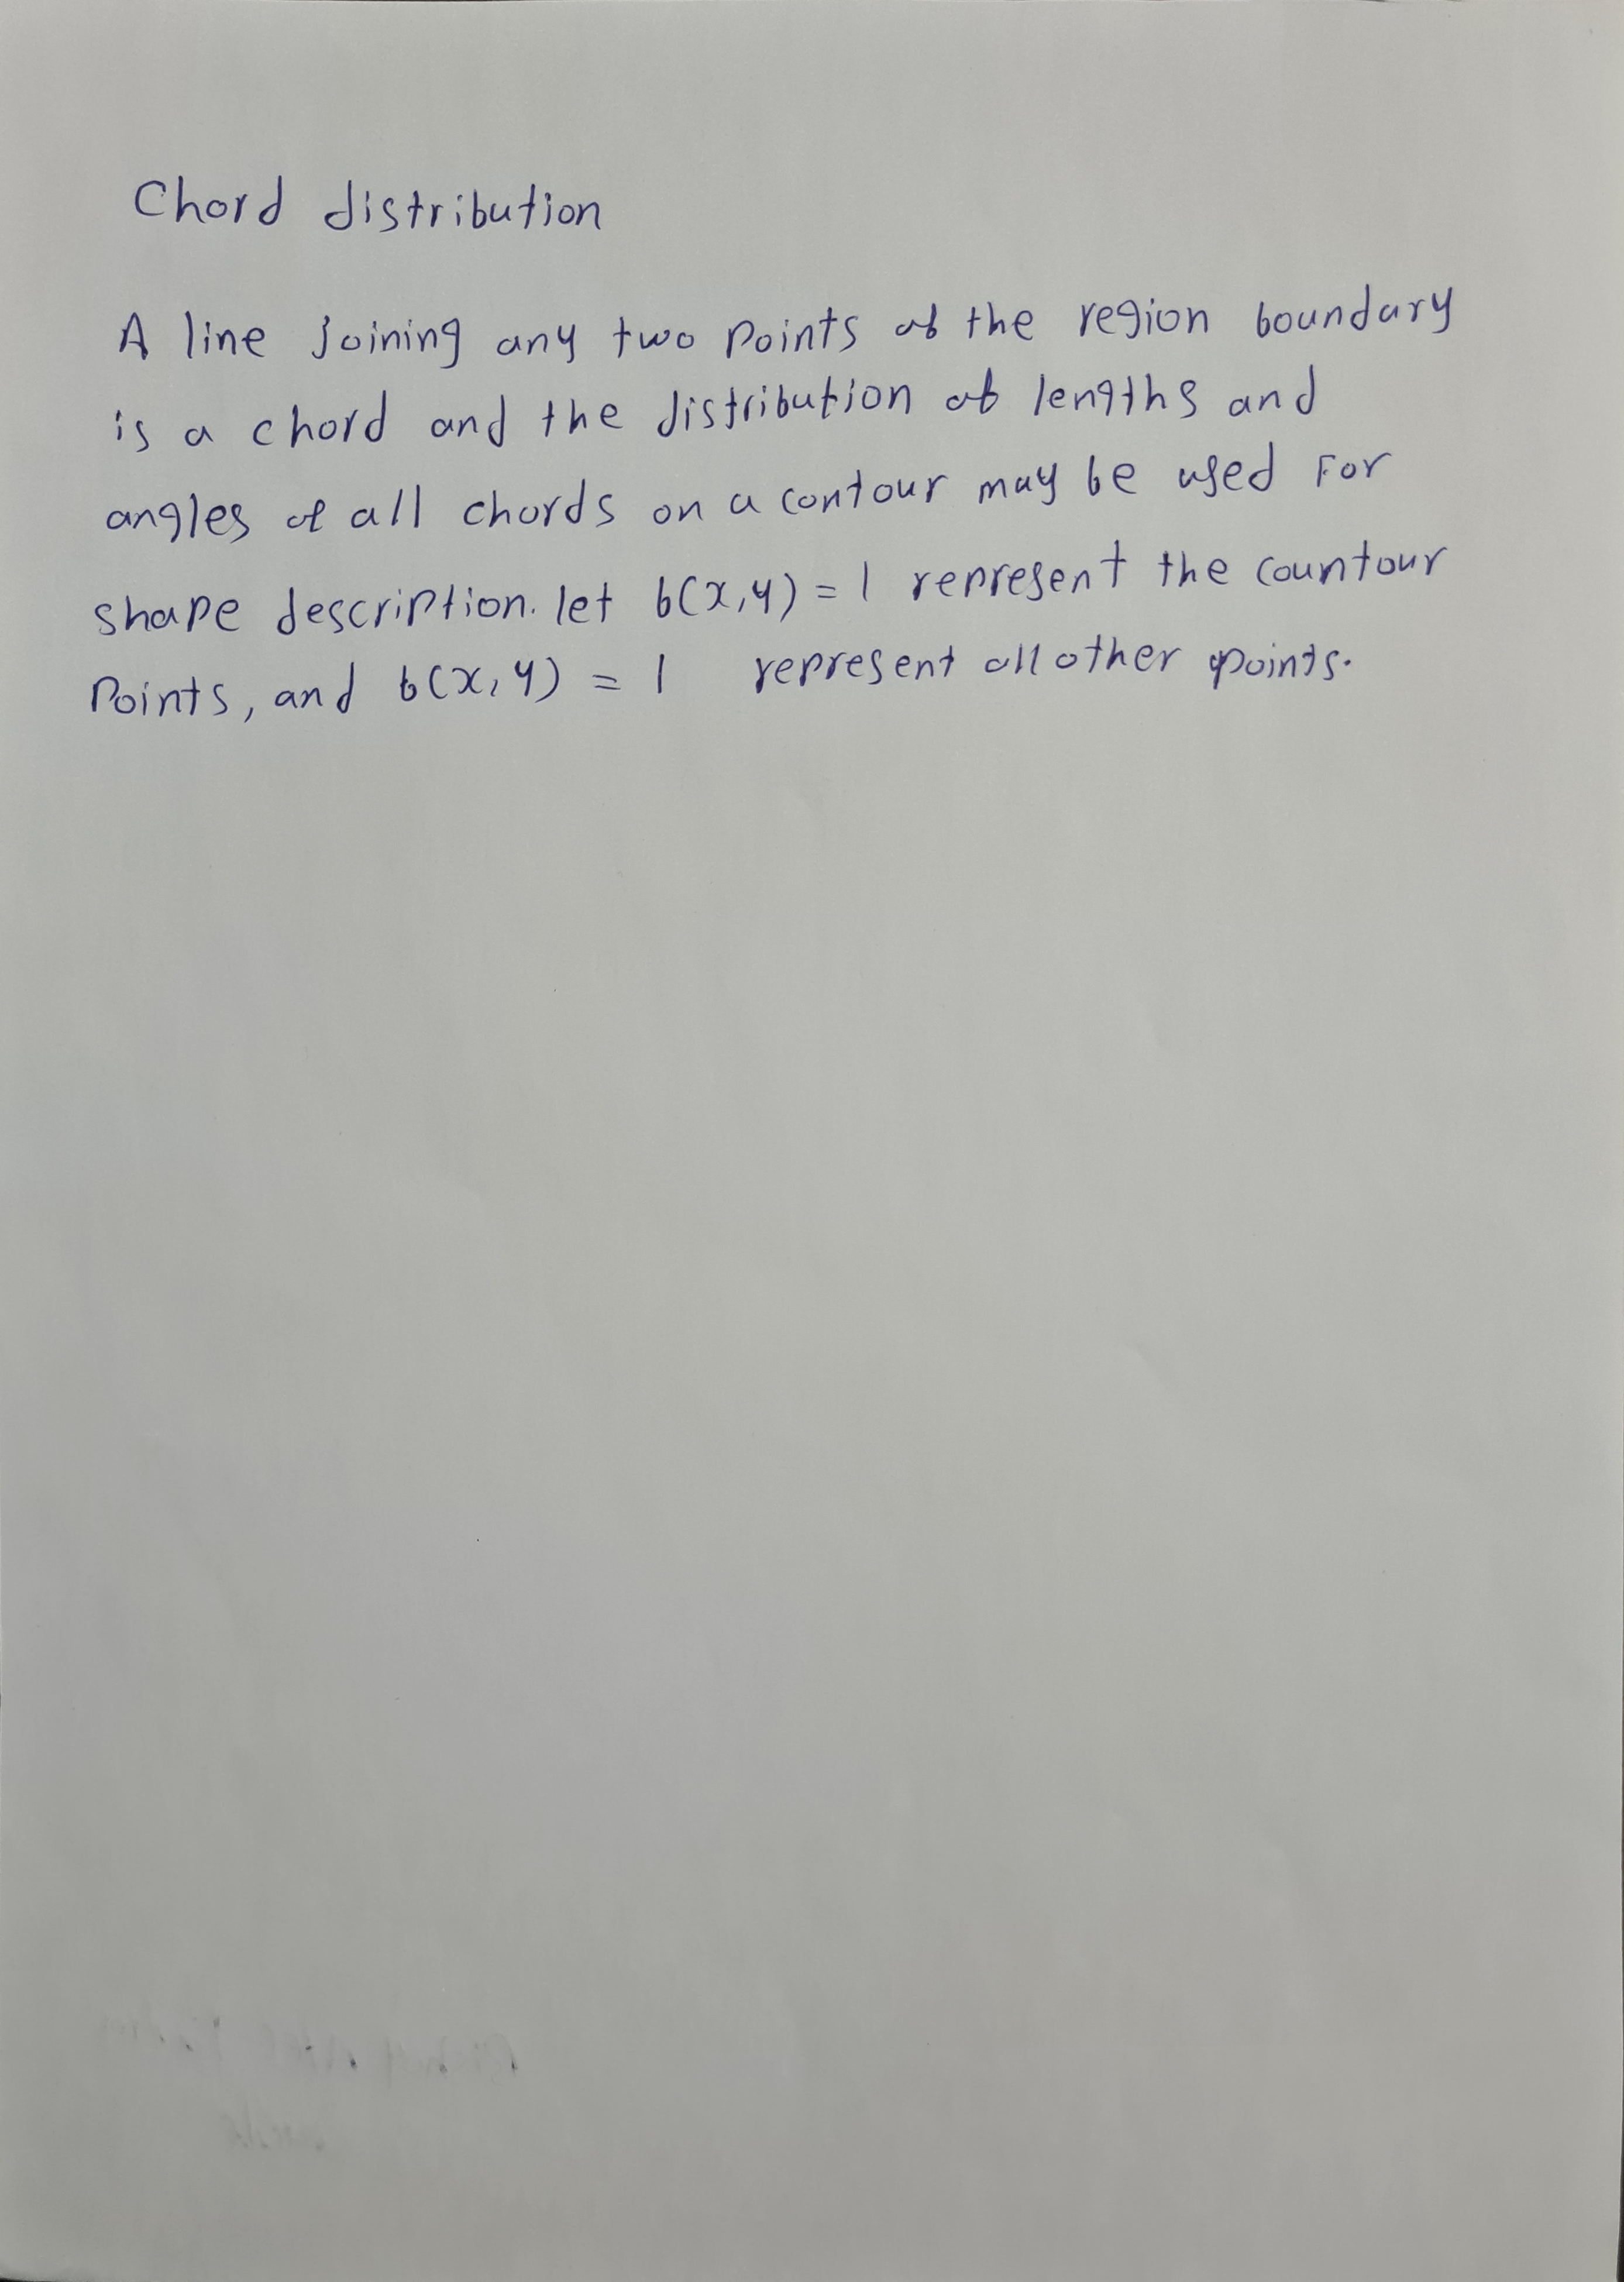 Chord distribution
A line Joining any two Points of the region boundary
is a chord and the distribution of lengths and
angles of all chords on a contour may be used For
shape description. let b(x,y) = 1 represent the countour
Points, and b(x,y) = 1 represent all other points.